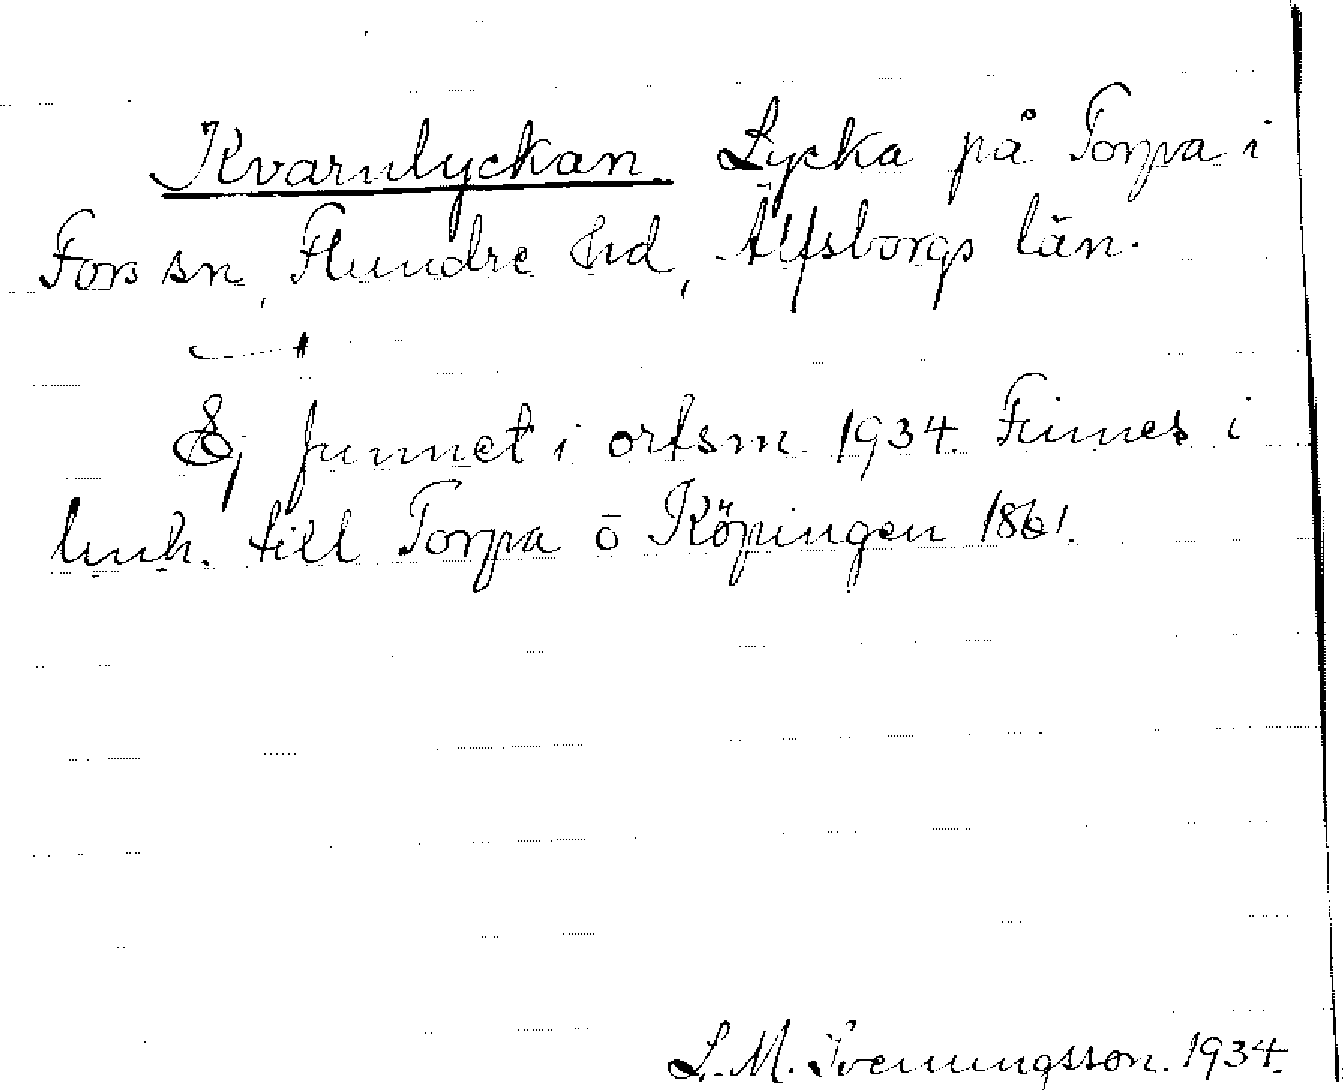 Kvarnlyckan. Lycka på Torpa i
Fors sn, Flundre hd, Älfsborgs län.
Ej funnet i ortsm. 1934. Finnes i
lmh. till Torpa o Köpingen 1861.
L. M. Svenungsson. 1934.